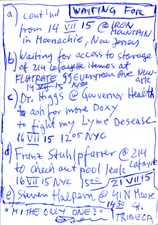 a) cont'nd WAITING FOR
from 14 VII 15 @ IRON
MOUNTAIN
in Moonachie, New Jersey
b) Waiting for access to storage
of 214 Lafayette items at
FLATRATE
c) Dr. Higgs @ Governor Health
to ask for more Doxy
to fight my Lyme Desease
16 VII 15 1205 NYC
d) Franz Stuhlpfarrer @ 214
Lafayette
to check out pool leak
16 VII 15 NYC 1500 21 VII 15
e) Steven Halpern @ 41 N Moore
1430
TRIBECA
*HI THE ONLY ONE!*